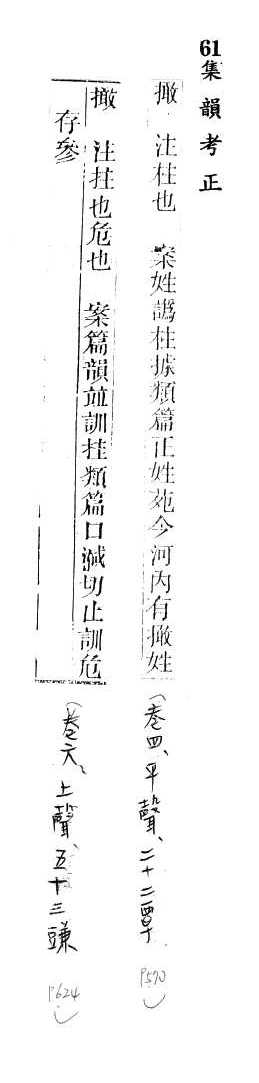 61集韻考正
㨴 注柱也 案姓譌柱據類篇正姓苑今河內有㨴姓
(卷四、平聲、二十二覃
P570
㨴 注拄也危也 案篇韻竝訓拄類篇口減切止訓危
存參
(卷六、上聲、五十三豏
P624